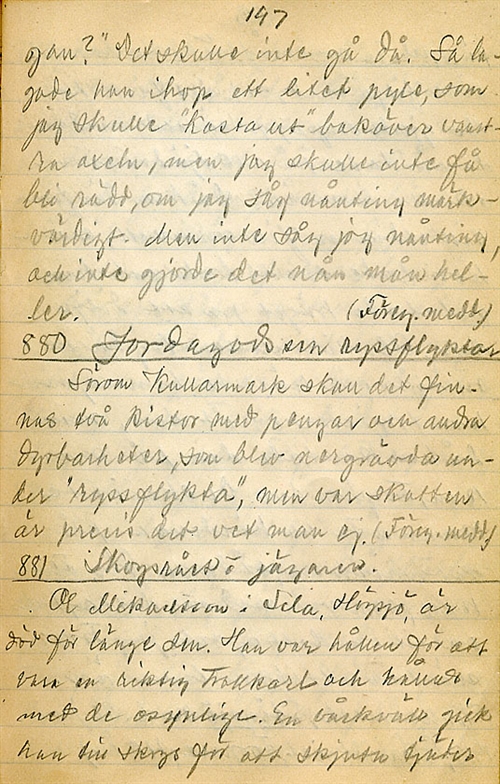 197
gan?" Det skulle inte gå då. Så la-
gade han ihop ett litet pyle, som
jag skulle "kasta ut" baköver vänst-
ra axeln, men jag skulle inte få
bli rädd, om jag såg nånting märk-
värdigt. Men inte såg jag nånting,
och inte gjorde det nån mån hel-
ler. (Föreg. medd)
880 Jordagods sen ryssflyktar
Sörom Kullarmark skall det fin-
nas två kistor med pengar och andra
dyrbarheter, som blev nergrävda un-
der "ryssflykta", men var skatten
är precis det vet man ej. (Föreg. medd)
881 Skogsrået o jägaren.
Ol Mikaelsson i Sela, Högsjö, är
död för länge sen. Han var hållen för att
vara en riktig trollkarl och
med de osynlige. En vårkväll gick
han till skogs för att skjuta tjäder